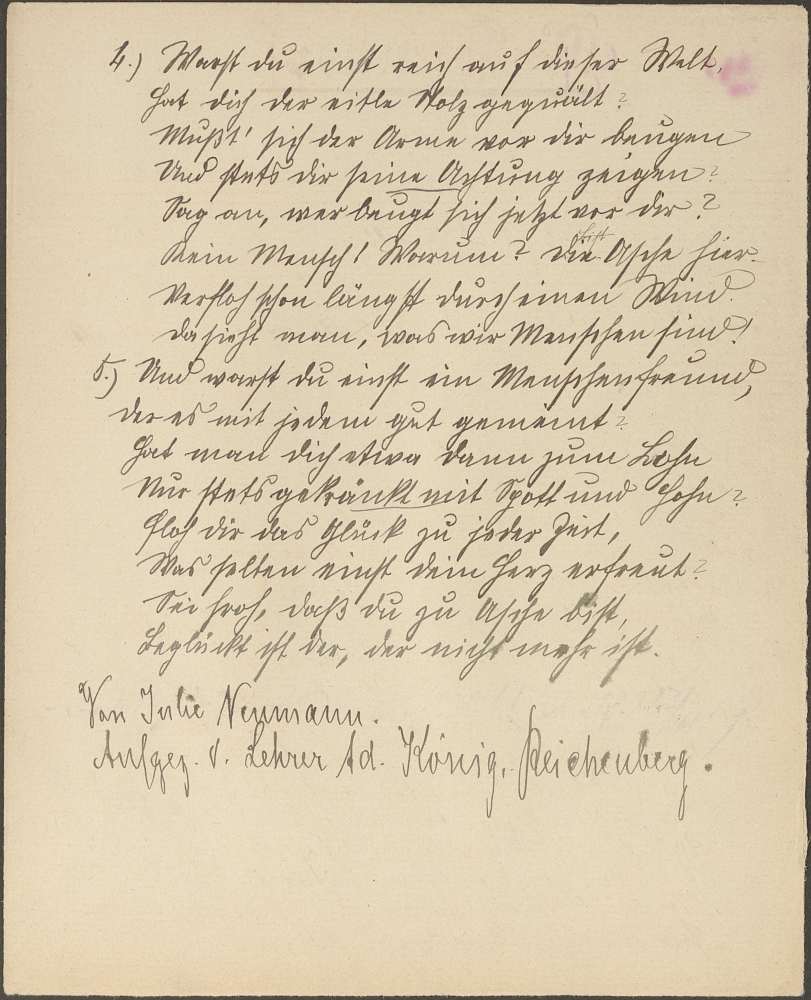 4.) Warst du einst reich auf dieser Welt,
Hat dich der eitle Stolz gequält?
Mußt' sich der Arme vor dir beugen
Und stets dir seine Achtung zeigen?
Sag an, wer beugt sich jetzt vor dir?
Kein Mensch! Warum? Die Asche hier
Verfloh schon längst durch einen Wind.
Da sieht man, was wir Menschen sind!
5.) Und warst du einst ein Menschenfreund,
Der es mit jedem gut gemeint?
Hat man dich etwa dann zum Lohn
Nur stets gekränkt mit Spott und Hohn?
Floh dir das Glück zu jeder Zeit,
Was selten einst dein Herz erfreut?
Sei froh, daß du zu Asche bist,
Beglückt ist der, der nicht mehr ist.
Von Julie Neumann.
Aufgez. v. Lehrer Ad. König, Reichenberg.